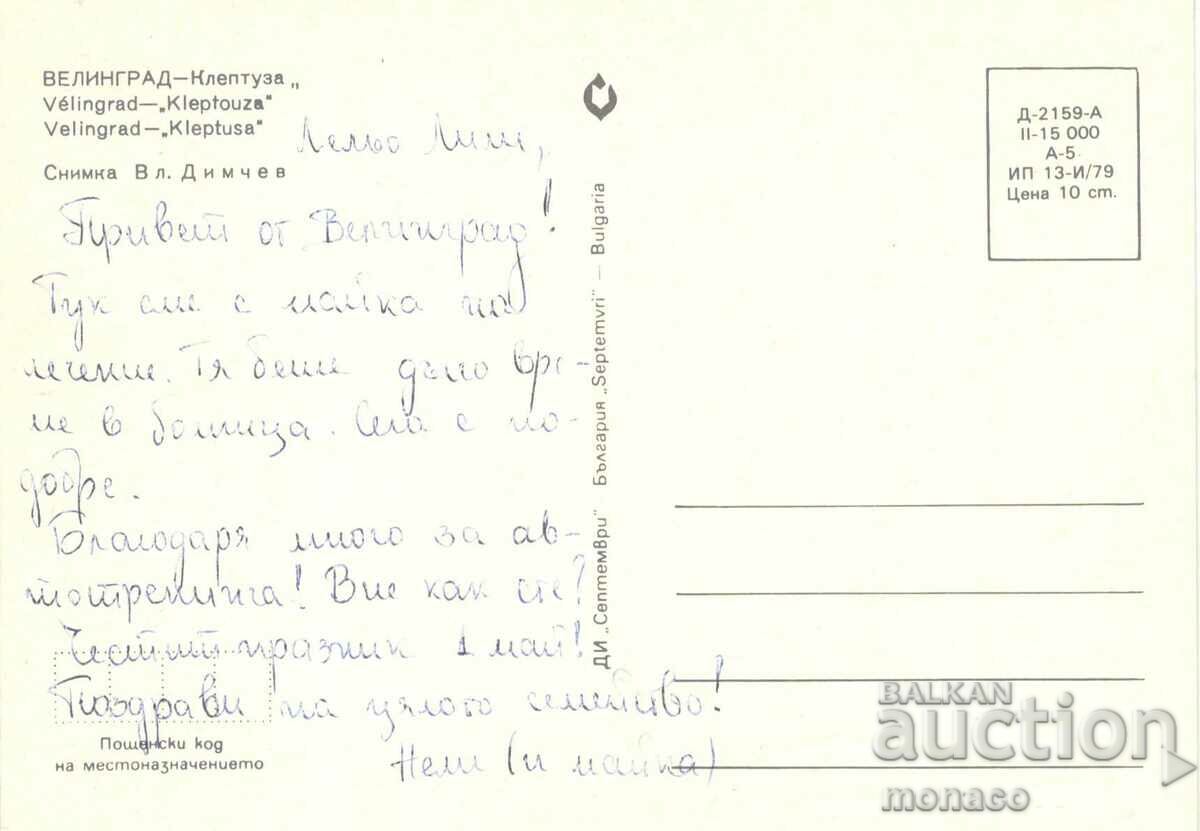 ВЕЛИНГРАД—Клептуза„
Vélingrad—„Kleptouza"
Velingrad—„Kleptusa"
Снимка Вл. Димчев
Привет от Велинград!
Тук сме с майка на
лечение. Тя беше дълго вре-
ме в болница. Сега е по-
добре.
Благодаря много за ав-
тотренинга! Вие как сте?
Честит празник 1 май!
Поздрави на цялото семейство!
Нели (и майка)
Пощенски код
на местоназначението
ДИ „Септември" България „Septemvri" — Bulgaria
Д-2159-А
II-15 000
А-5
ИП 13-И/79
Цена 10 ст.
BALKAN
auction
monaco